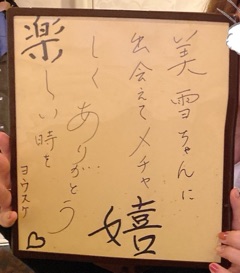 美雪ちゃんに
出会えてメチャ
嬉
しく ありがとう
楽しい時を
ヨウスケ